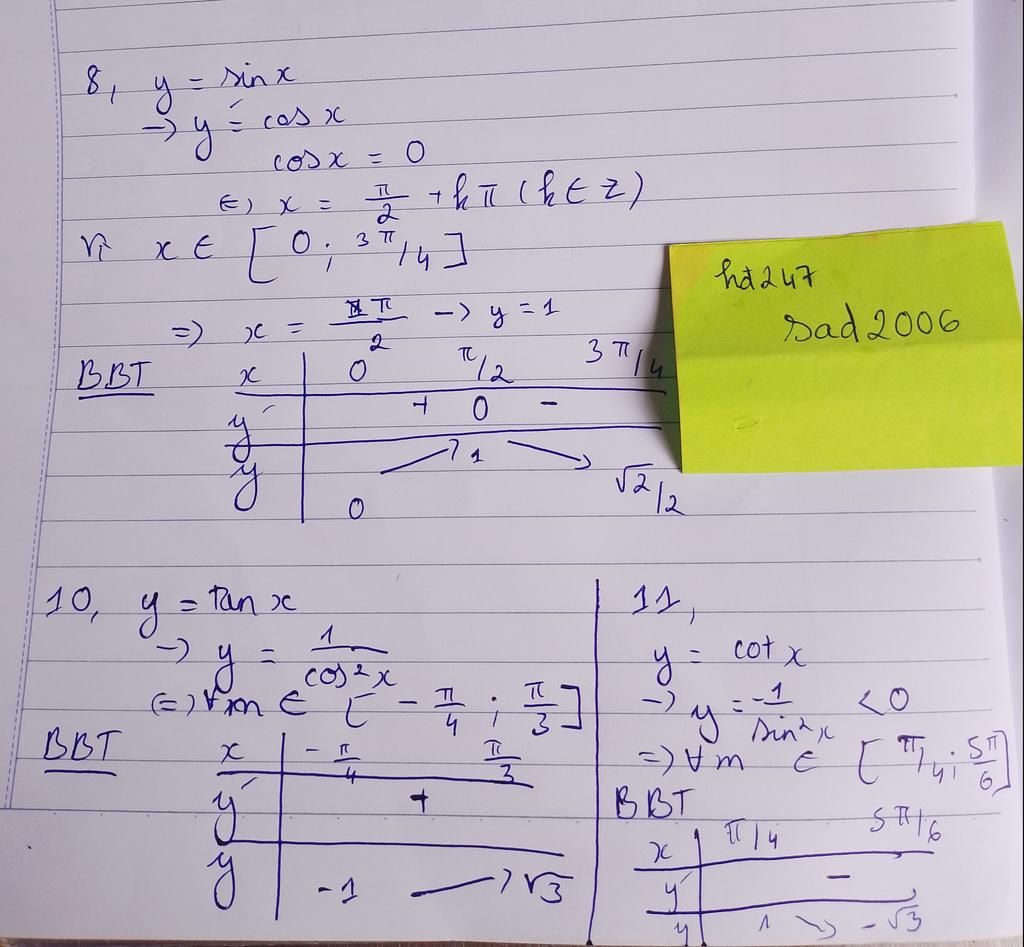 8, y = sin x
→ y' = cos x
cos x = 0
⇔ x = π/2 + kπ (k ∈ Z)
Vì x ∈ [0; 3π/4]
⇒ x = π/2 → y = 1
BBT
x 0 π/2 3π/4
y' + 0 -
y 0 ↗ 1 ↘ √2/2
hdt247
sad2006
10, y = tan x
→ y = 1/cos²x
(=) ∀m ∈ [-π/4; π/3]
BBT
x -π/4 π/3
y' +
y -1 → √3
11,
y = cot x
→ y = -1/sin²x < 0
⇒ ∀m ∈ [π/4; 5π/6]
BBT
x π/4 5π/6
y' -
y 1 ↘ -√3